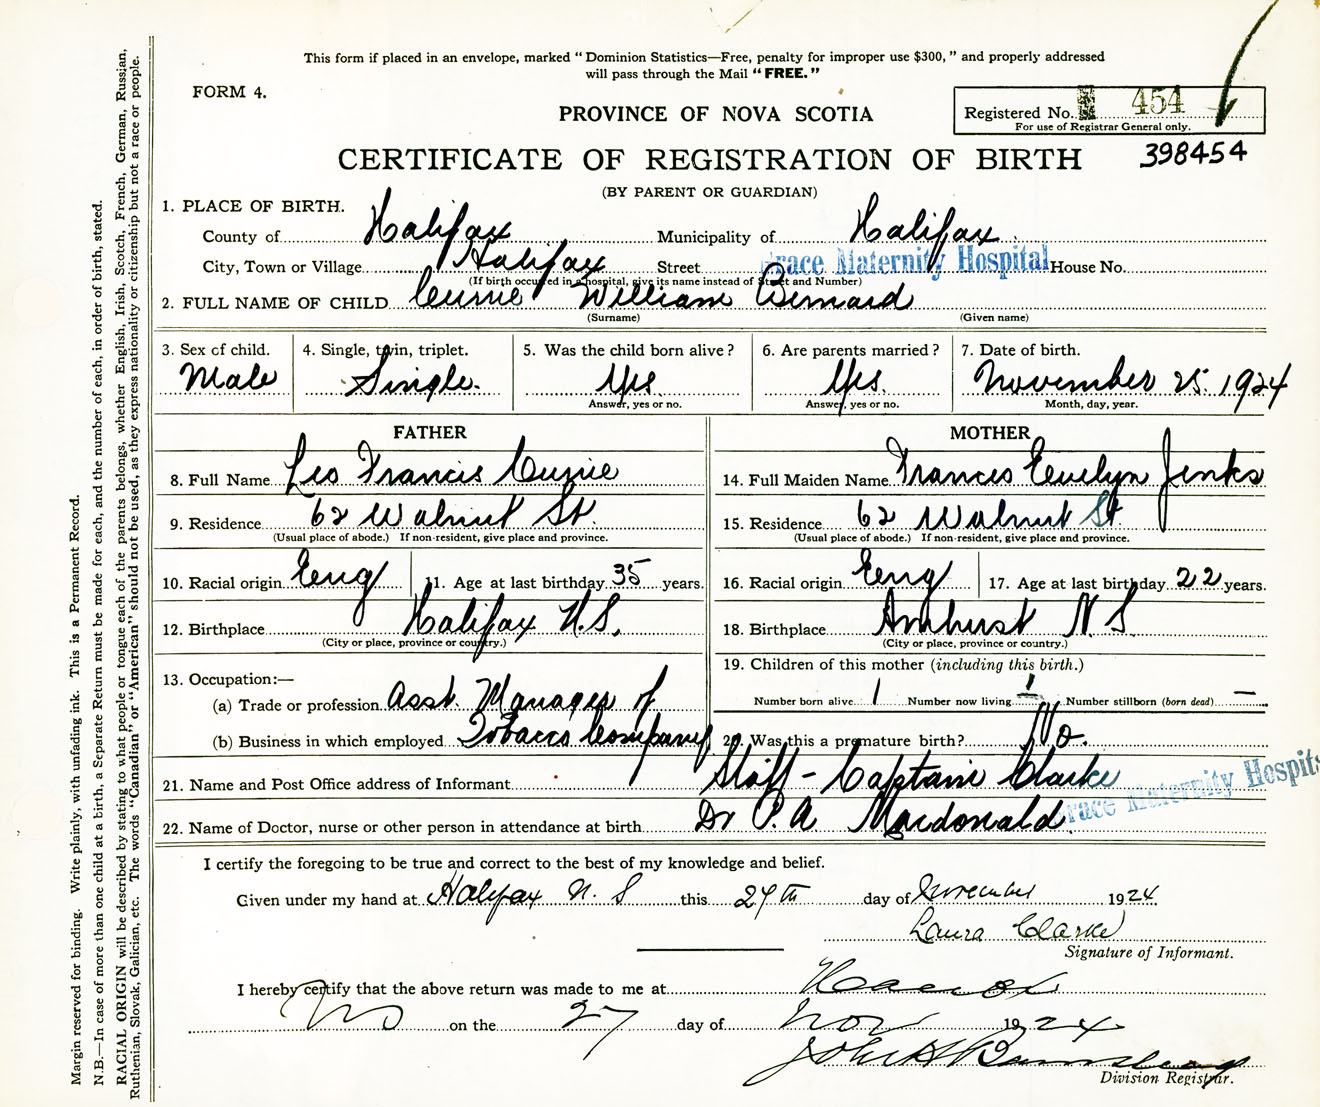 This form if placed in an envelope, marked "Dominion Statistics—Free, penalty for improper use $300," and properly addressed
will pass through the Mail "FREE."
FORM 4.
Registered No. 454
For use of Registrar General only.
PROVINCE OF NOVA SCOTIA
CERTIFICATE OF REGISTRATION OF BIRTH 398454
(BY PARENT OR GUARDIAN)
1. PLACE OF BIRTH.
County of Halifax Municipality of Halifax
City, Town or Village Halifax Street Grace Maternity Hospital House No.
(If birth occurred in a hospital, give its name instead of Street and Number)
2. FULL NAME OF CHILD Currie William Bernard
(Surname) (Given name)
3. Sex of child. 4. Single, twin, triplet. 5. Was the child born alive? 6. Are parents married? 7. Date of birth.
Male Single. Yes. Yes. November 25. 1924
Answer, yes or no. Answer, yes or no. Month, day, year.
FATHER MOTHER
8. Full Name Leo Francis Currie 14. Full Maiden Name Frances Evelyn Jenks
9. Residence 62 Walnut St. 15. Residence 62 Walnut St.
(Usual place of abode.) If non-resident, give place and province. (Usual place of abode.) If non-resident, give place and province.
10. Racial origin Eng 11. Age at last birthday 35 years. 16. Racial origin Eng 17. Age at last birthday 22 years.
12. Birthplace Halifax N.S. 18. Birthplace Amherst N S.
(City or place, province or country.) (City or place, province or country.)
13. Occupation:— 19. Children of this mother (including this birth.)
(a) Trade or profession Asst. Manager of Number born alive 1 Number now living 1 Number stillborn (born dead) —
(b) Business in which employed Tobacco Company 20. Was this a premature birth? No.
21. Name and Post Office address of Informant Staff - Captain Clarke Grace Maternity Hospital
22. Name of Doctor, nurse or other person in attendance at birth Dr P. A Macdonald
I certify the foregoing to be true and correct to the best of my knowledge and belief.
Given under my hand at Halifax N. S this 27th day of November 1924.
Laura Clarke
Signature of Informant.
I hereby certify that the above return was made to me at
on the 27 day of Nov 1924
Division Registrar.
Margin reserved for binding. Write plainly, with unfading ink. This is a Permanent Record.
N.B.—In case of more than one child at a birth, a Separate Return must be made for each, and the number of each, in order of birth, stated.
RACIAL ORIGIN will be described by stating to what people or tongue each of the parents belongs, whether English, Irish, Scotch, French, German, Russian,
Ruthenian, Slovak, Galician, etc. The words "Canadian" or "American" should not be used, as they express nationality or citizenship but not a race or people.